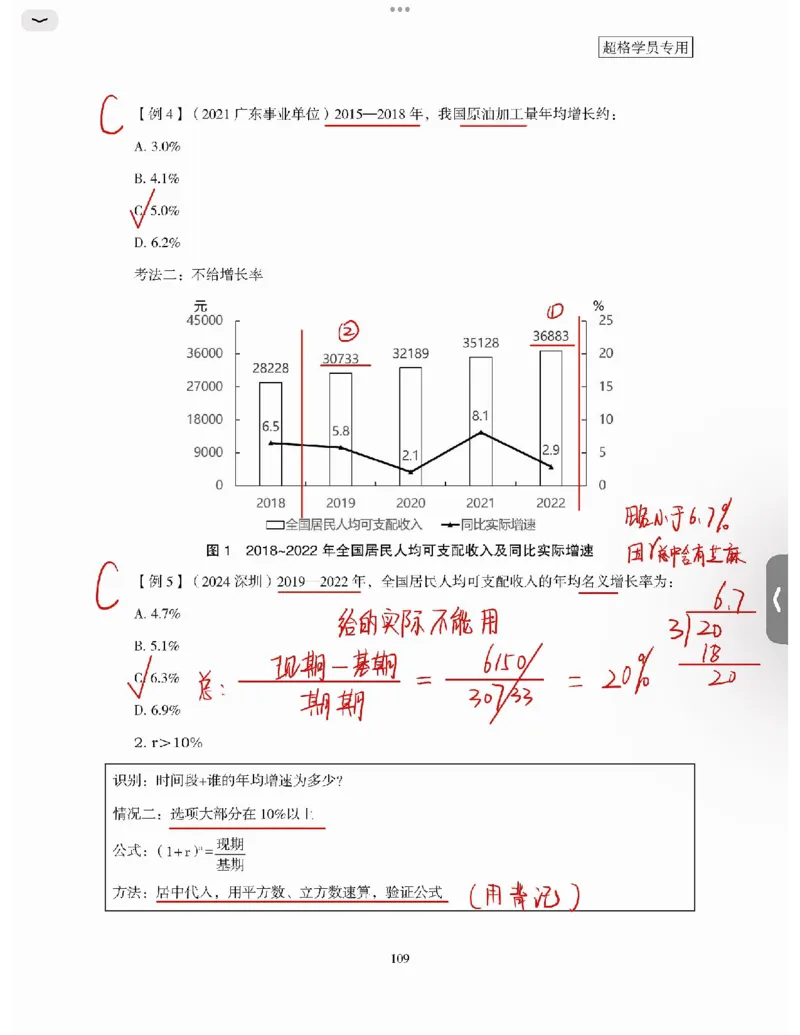 超格学员专用
C 【例 4】（2021 广东事业单位）2015—2018 年，我国原油加工量年均增长约：
A. 3.0%
B. 4.1%
C. 5.0%
D. 6.2%
考法二：不给增长率
元 %
45000 36000 27000 18000 9000 0
25 20 15 10 5 0
② ①
28228 30733 32189 35128 36883
6.5 5.8 2.1 8.1 2.9
2018 2019 2020 2021 2022
全国居民人均可支配收入 同比实际增速
图 1 2018~2022 年全国居民人均可支配收入及同比实际增速
略小于6.7%
因r总中含有芝麻
C 【例 5】（2024 深圳）2019—2022 年，全国居民人均可支配收入的年均名义增长率为：
A. 4.7%
给的实际不能用
B. 5.1%
C. 6.3%
总： 现期－基期 / 期期 = 6150 / 30733 = 20%
6.7
3 20
18
20
D. 6.9%
2. r＞10%
识别：时间段+谁的年均增速为多少？
情况二：选项大部分在 10%以上
公式：（1+r）ⁿ=现期/基期
方法：居中代入，用平方数、立方数速算，验证公式 （用背记）
109